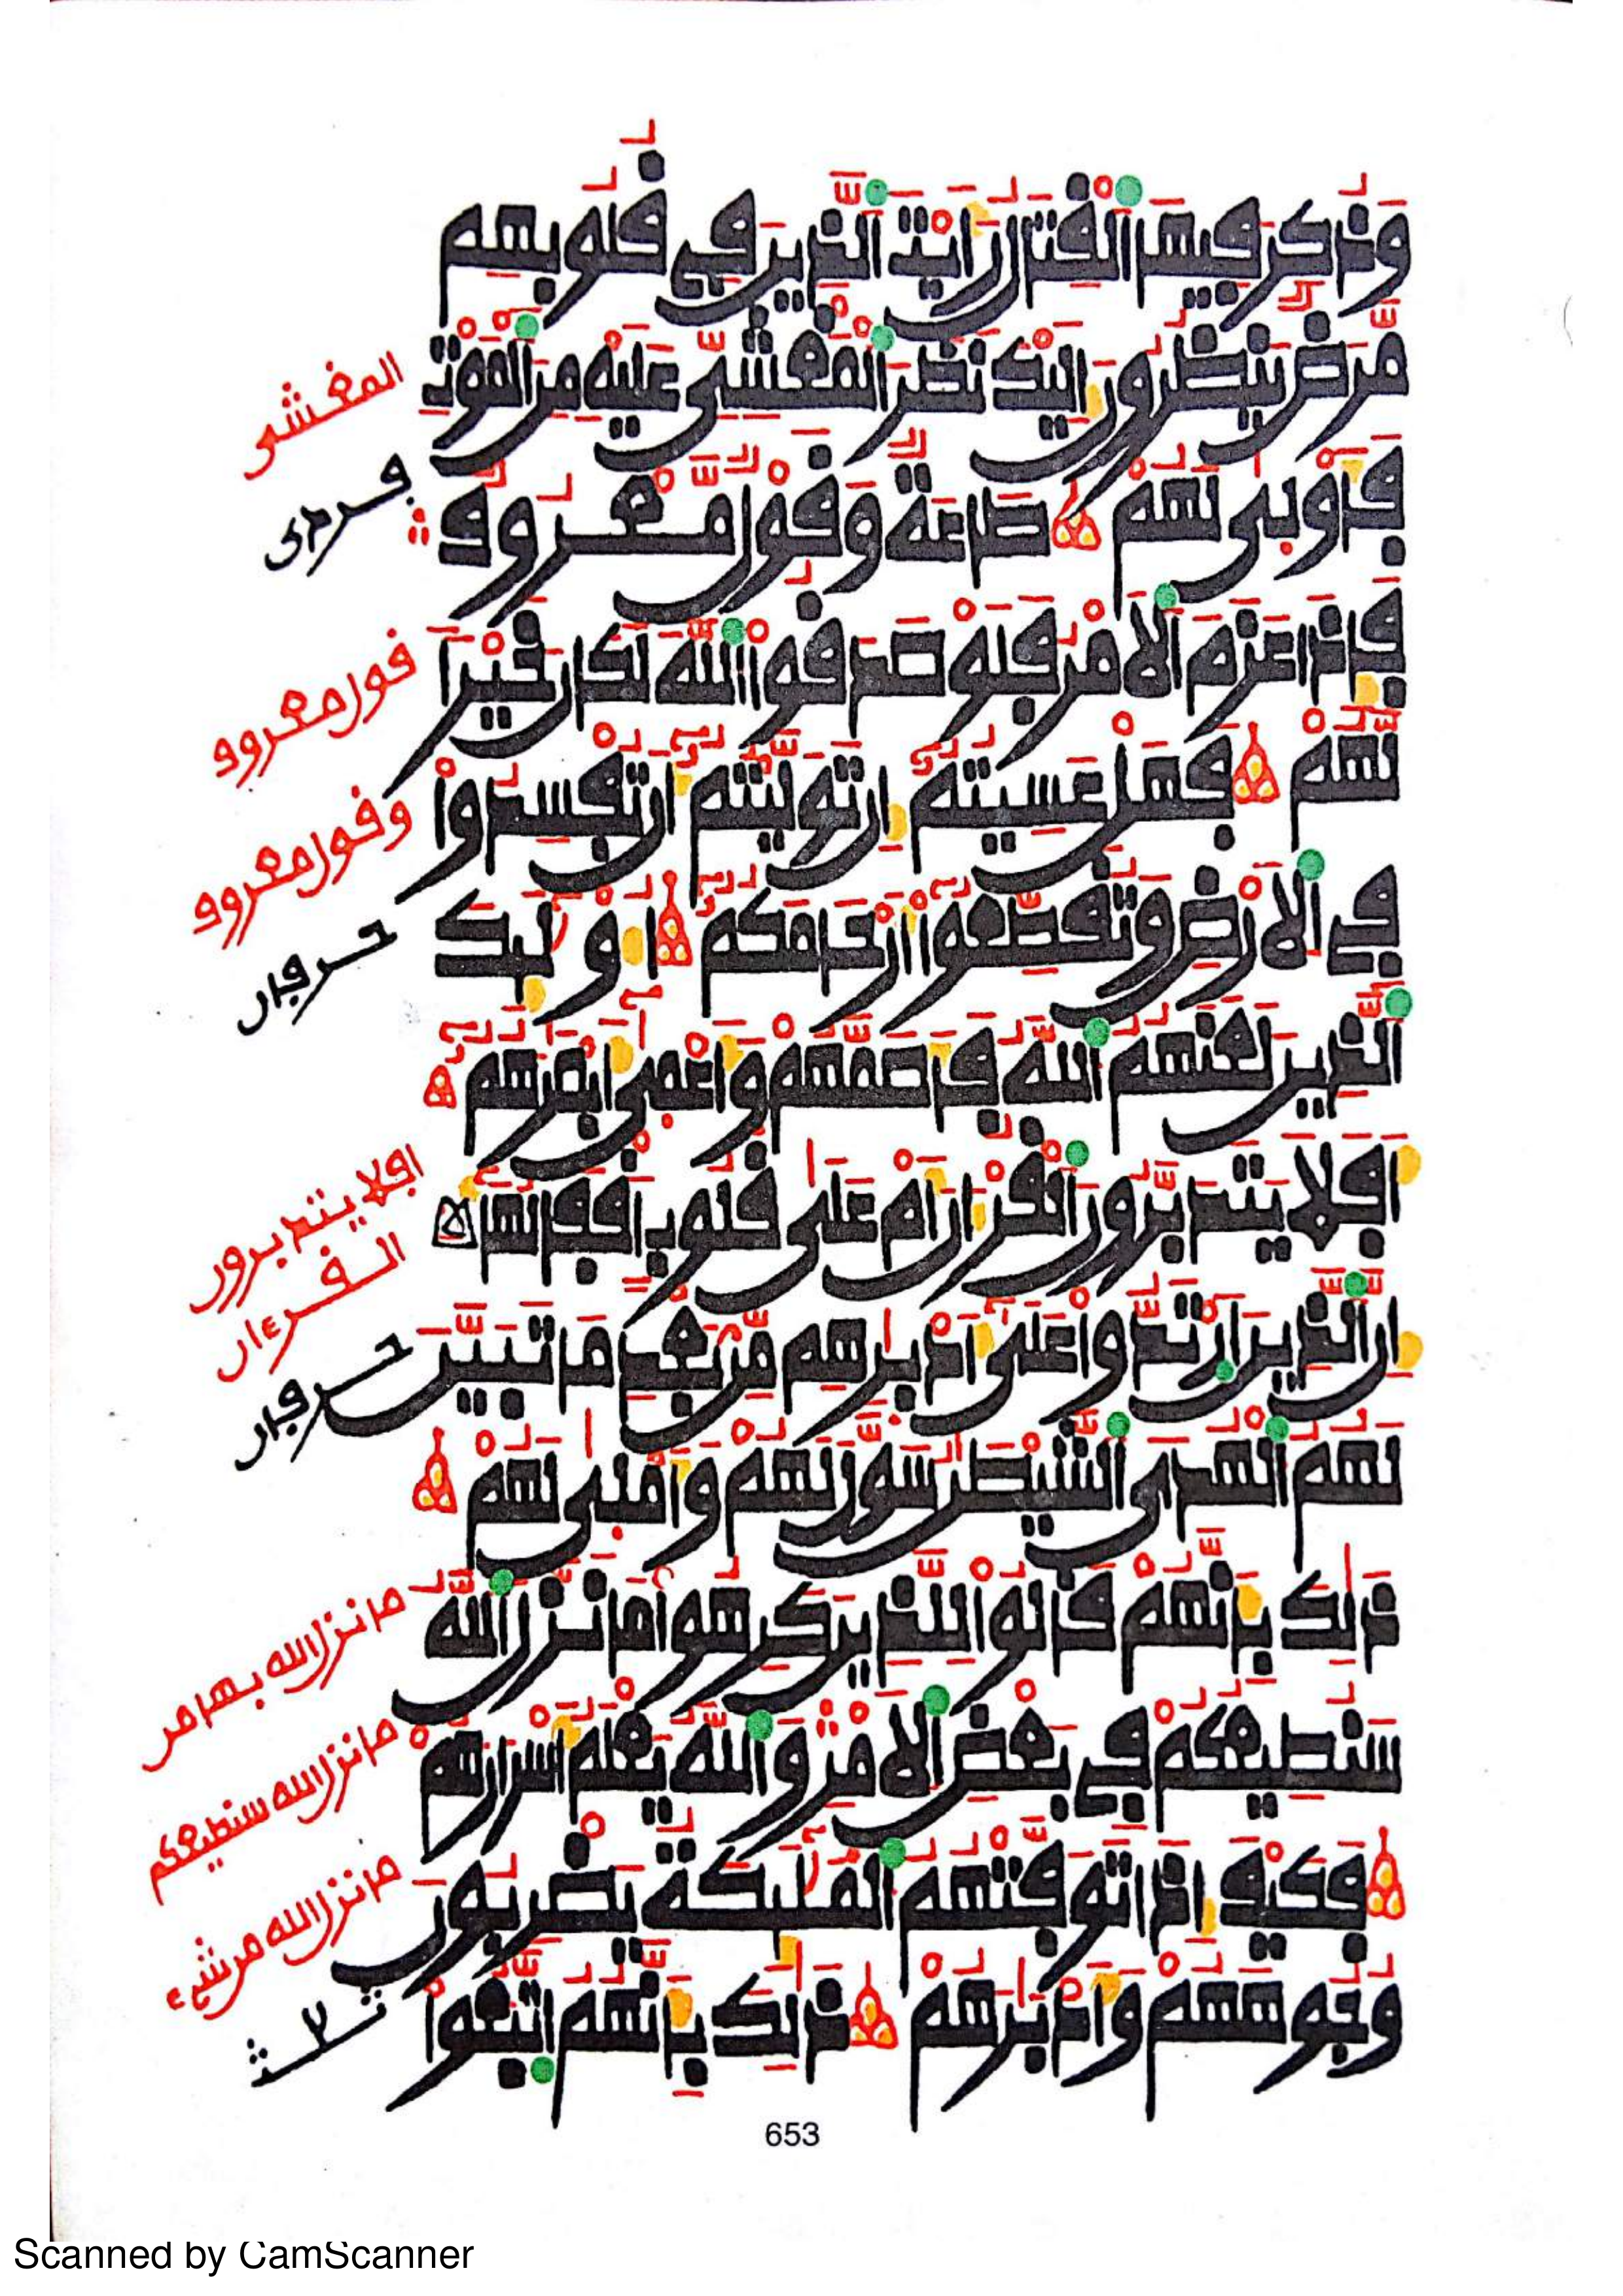 وَذُكِرَ فِيهَا الْقِتَالُ رَأَيْتَ الَّذِينَ فِي قُلُوبِهِم
مَّرَضٌ يَنظُرُونَ إِلَيْكَ نَظَرَ الْمَغْشِيِّ عَلَيْهِ مِنَ الْمَوْتِ
فَأَوْلَىٰ لَهُمْ طَاعَةٌ وَقَوْلٌ مَّعْرُوفٌ
فَإِذَا عَزَمَ الْأَمْرُ فَلَوْ صَدَقُوا اللَّهَ لَكَانَ خَيْرًا
لَّهُمْ فَهَلْ عَسِيتُمْ إِن تَوَلَّيْتُمْ أَن تُفْسِدُوا
فِي الْأَرْضِ وَتُقَطِّعُوا أَرْحَامَكُمْ أُولَٰئِكَ
الَّذِينَ لَعَنَهُمُ اللَّهُ فَأَصَمَّهُمْ وَأَعْمَىٰ أَبْصَارَهُمْ
أَفَلَا يَتَدَبَّرُونَ الْقُرْآنَ أَمْ عَلَىٰ قُلُوبٍ أَقْفَالُهَا
إِنَّ الَّذِينَ ارْتَدُّوا عَلَىٰ أَدْبَارِهِم مِّن بَعْدِ مَا تَبَيَّنَ
لَهُمُ الْهُدَى الشَّيْطَانُ سَوَّلَ لَهُمْ وَأَمْلَىٰ لَهُمْ
ذَٰلِكَ بِأَنَّهُمْ قَالُوا لِلَّذِينَ كَرِهُوا مَا نَزَّلَ اللَّهُ
سَنُطِيعُكُمْ فِي بَعْضِ الْأَمْرِ وَاللَّهُ يَعْلَمُ أَسْرَارَهُمْ
فَكَيْفَ إِذَا تَوَفَّتْهُمُ الْمَلَائِكَةُ يَضْرِبُونَ
وُجُوهَهُمْ وَأَدْبَارَهُمْ ذَٰلِكَ بِأَنَّهُمُ اتَّبَعُوا
المغشى
قول معروف
وقول معروف
افلا يتدبرون
القرءان
ما نزل الله بها من
ما نزل الله سنطيعكم
ما نزل الله من شيء
653
Scanned by CamScanner